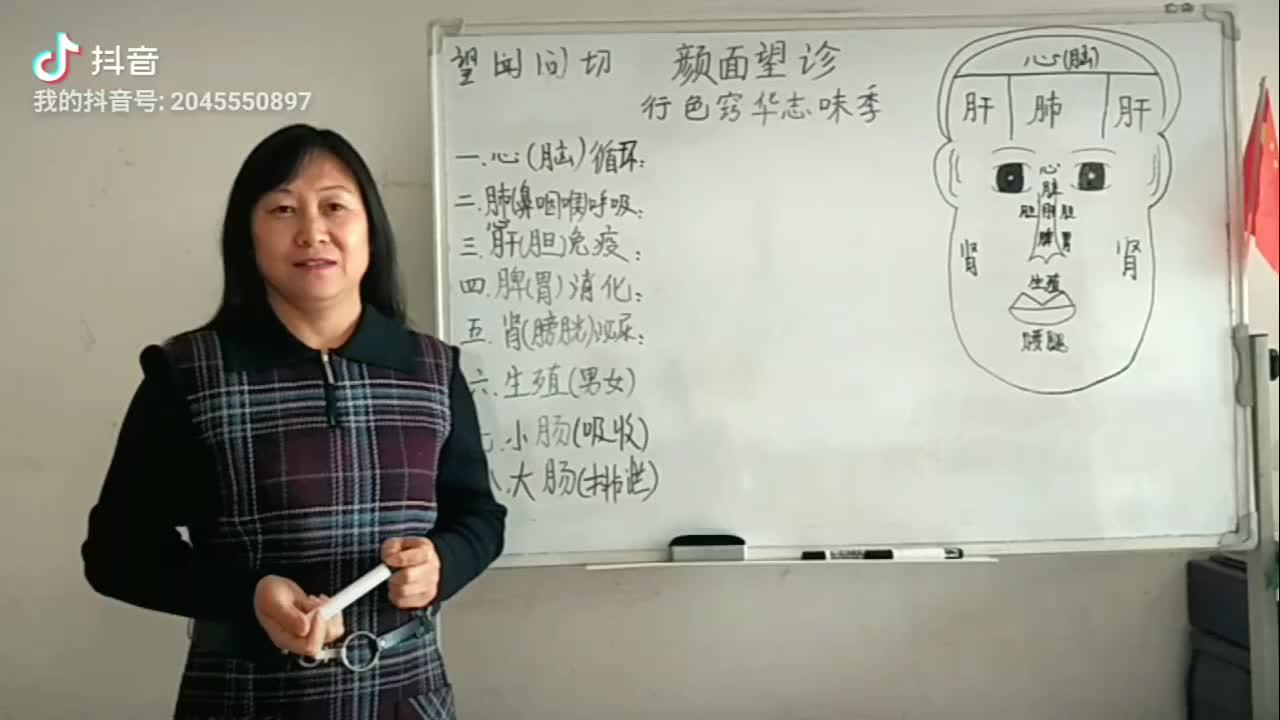 抖音
我的抖音号: 2045550897
望闻问切
颜面望诊
行色窍华志味季
一.心(脑)循环:
二.肺(鼻咽喉)呼吸:
三.肝(胆)免疫:
四.脾(胃)消化:
五.肾(膀胱)泌尿:
六.生殖(男女)
七.小肠(吸收)
八.大肠(排泄)
心(脑)
肝 肺 肝
心
胆 肝 胆
脾 胃
肾 肾
生殖
腰腿